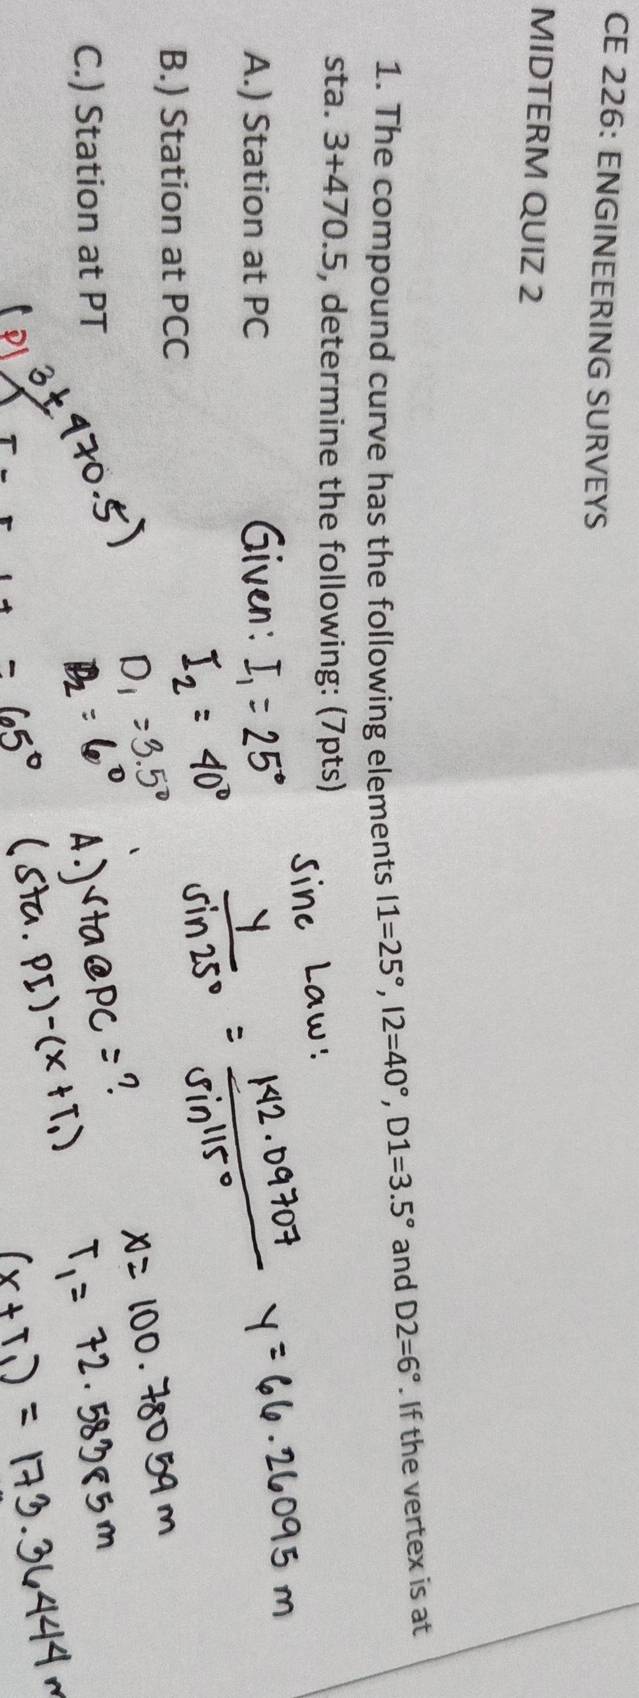 CE 226: ENGINEERING SURVEYS
MIDTERM QUIZ 2
1. The compound curve has the following elements I1=25°, I2=40°, D1=3.5° and D2=6°. If the vertex is at
sta. 3+470.5, determine the following: (7pts)
A.) Station at PC
B.) Station at PCC
C.) Station at PT
Given: I₁ = 25°
I₂ = 40°
D₁ = 3.5°
D₂ = 6°
Sine Law:
y/sin 25° = 142.09707/sin 115°
y = 66.26095 m
x = 100.78059 m
T₁ = 72.58385 m
(x + T₁) = 173.36444 m
A.) sta @ PC = ?
(sta. PI) - (x + T₁)
(PI 3+470.5)
= 65°